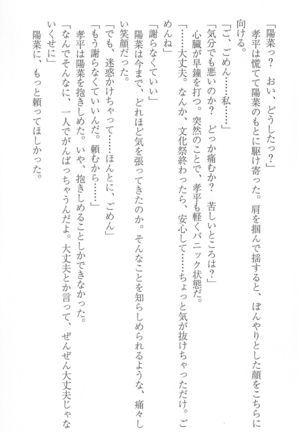 「陽菜っ？　おい、どうしたっ？」
孝平は慌てて陽菜のもとに駆け寄った。肩を掴んで揺すると、ぼんやりとした顔をこちらに
向ける。
「ご、ごめん……私……」
「気分でも悪いのか？　どっか痛むか？　苦しいところは？」
心臓が早鐘を打つ。突然のことで、孝平も軽くパニック状態だ。
「……大丈夫。なんか、文化祭終わったら、安心して……ちょっと気が抜けちゃっただけ。ご
めんね」
「謝らなくていい」
陽菜は今まで、どれほど気を張ってきたのか。そんなことを知らしめられるような、痛々し
い笑顔だった。
「でも、迷惑かけちゃって……ほんとに、ごめん」
「もう謝らなくていいんだ。頼むから……」
孝平は陽菜を抱きしめた。いや、抱きしめることしかできなかった。
「なんでそんなに、一人でがんばっちゃうんだよ。大丈夫とか言って、ぜんぜん大丈夫じゃな
いくせに」
陽菜に、もっと頼ってほしかった。